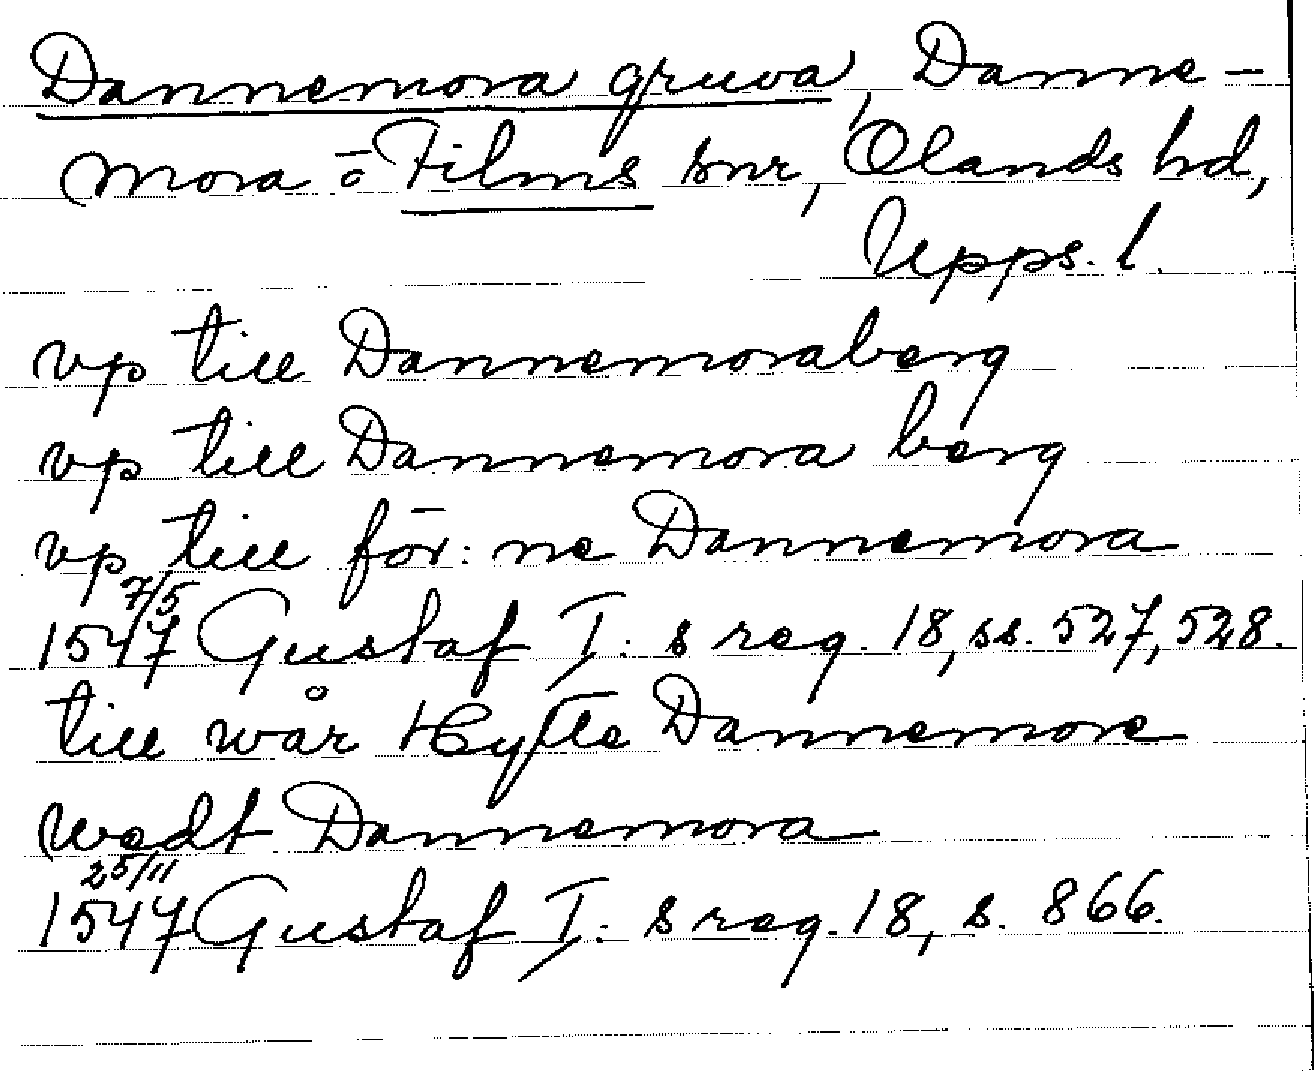 Dannemora gruva, Danne-
mora o Films snr, Olands hd,
Upps. l.
vp till Dannemoraberg
vp till Dannemora berg
vp till för: ne Dannemora
7/5
1547 Gustaf I: s reg. 18, ss. 527, 528.
till wår Hytte Dannemore
wedt Dannemora
25/11
1547 Gustaf I: s reg. 18, s. 866.